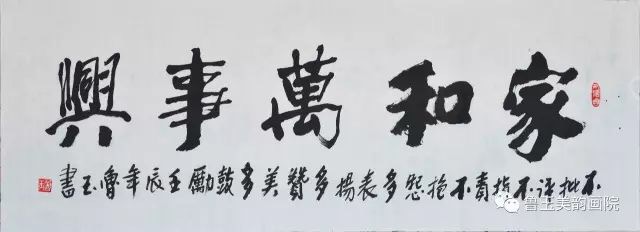 家和萬事興
不批评不指責不抱怨多表揚多贊美多鼓勵壬辰年魯玉書
鲁玉美韵画院